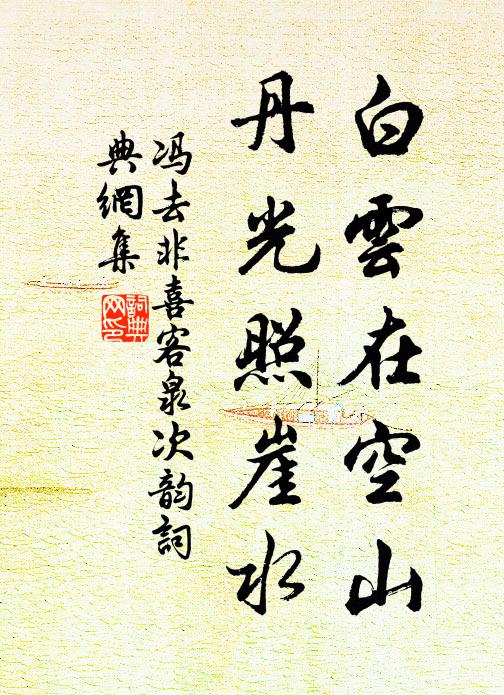 白雲在空山
丹光照崖水
冯去非喜客泉次韵詞
典網集
詞典
网印